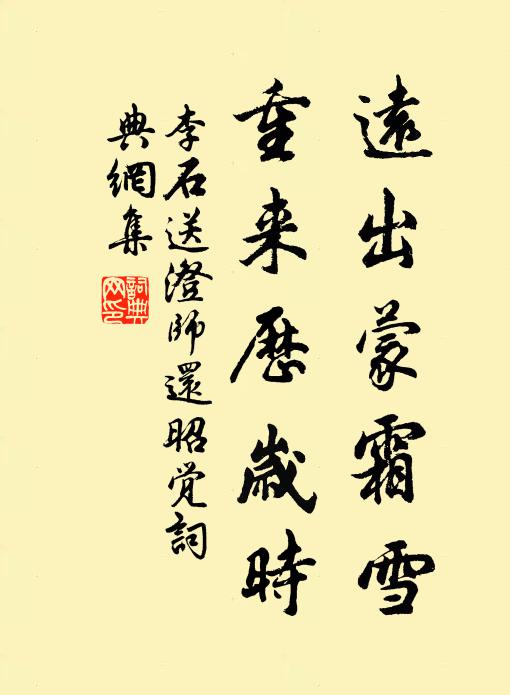 遠出蒙霜雪
重来歷歲時
李石送澄師還昭覚詞
典網集
詞典网印